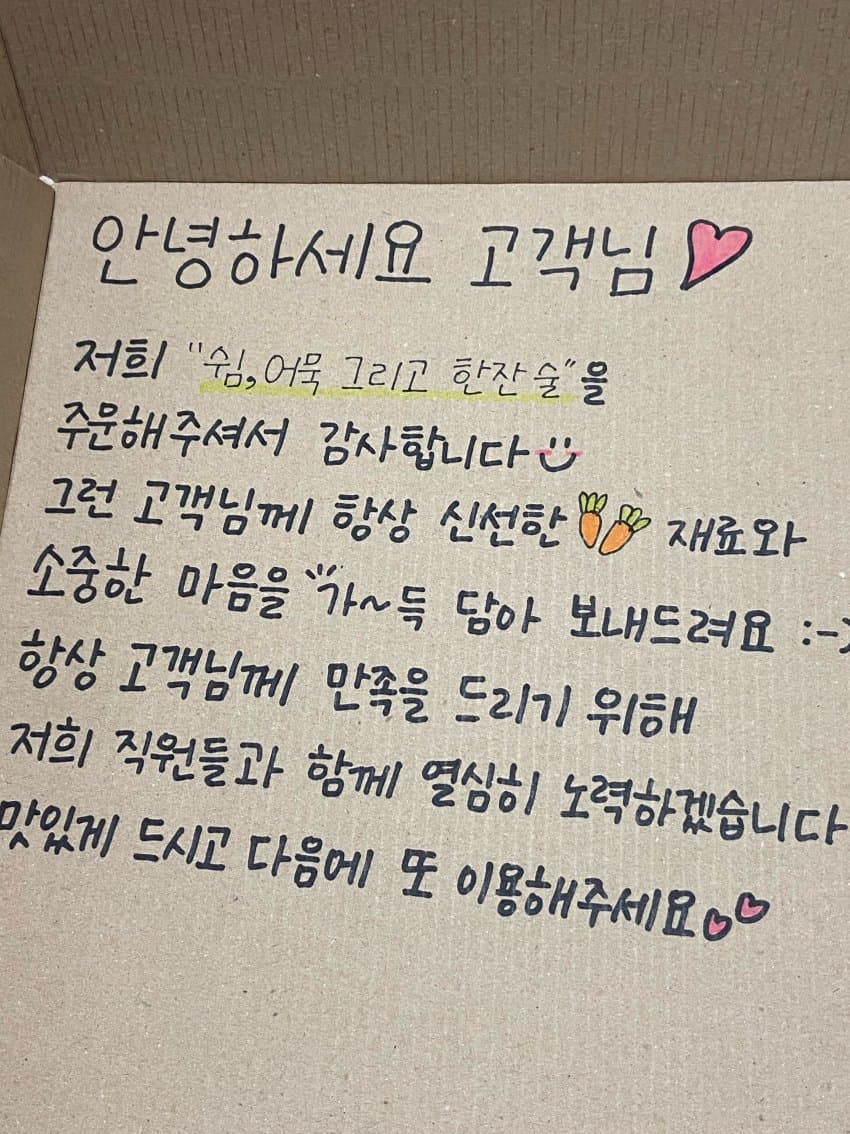 안녕하세요 고객님
저희 "쉼,어묵 그리고 한잔 술"을
주문해주셔서 감사합니다
그런 고객님께 항상 신선한 재료와
소중한 마음을 가~득 담아 보내드려요 :-)
항상 고객님께 만족을 드리기 위해
저희 직원들과 함께 열심히 노력하겠습니다
맛있게 드시고 다음에 또 이용해주세요